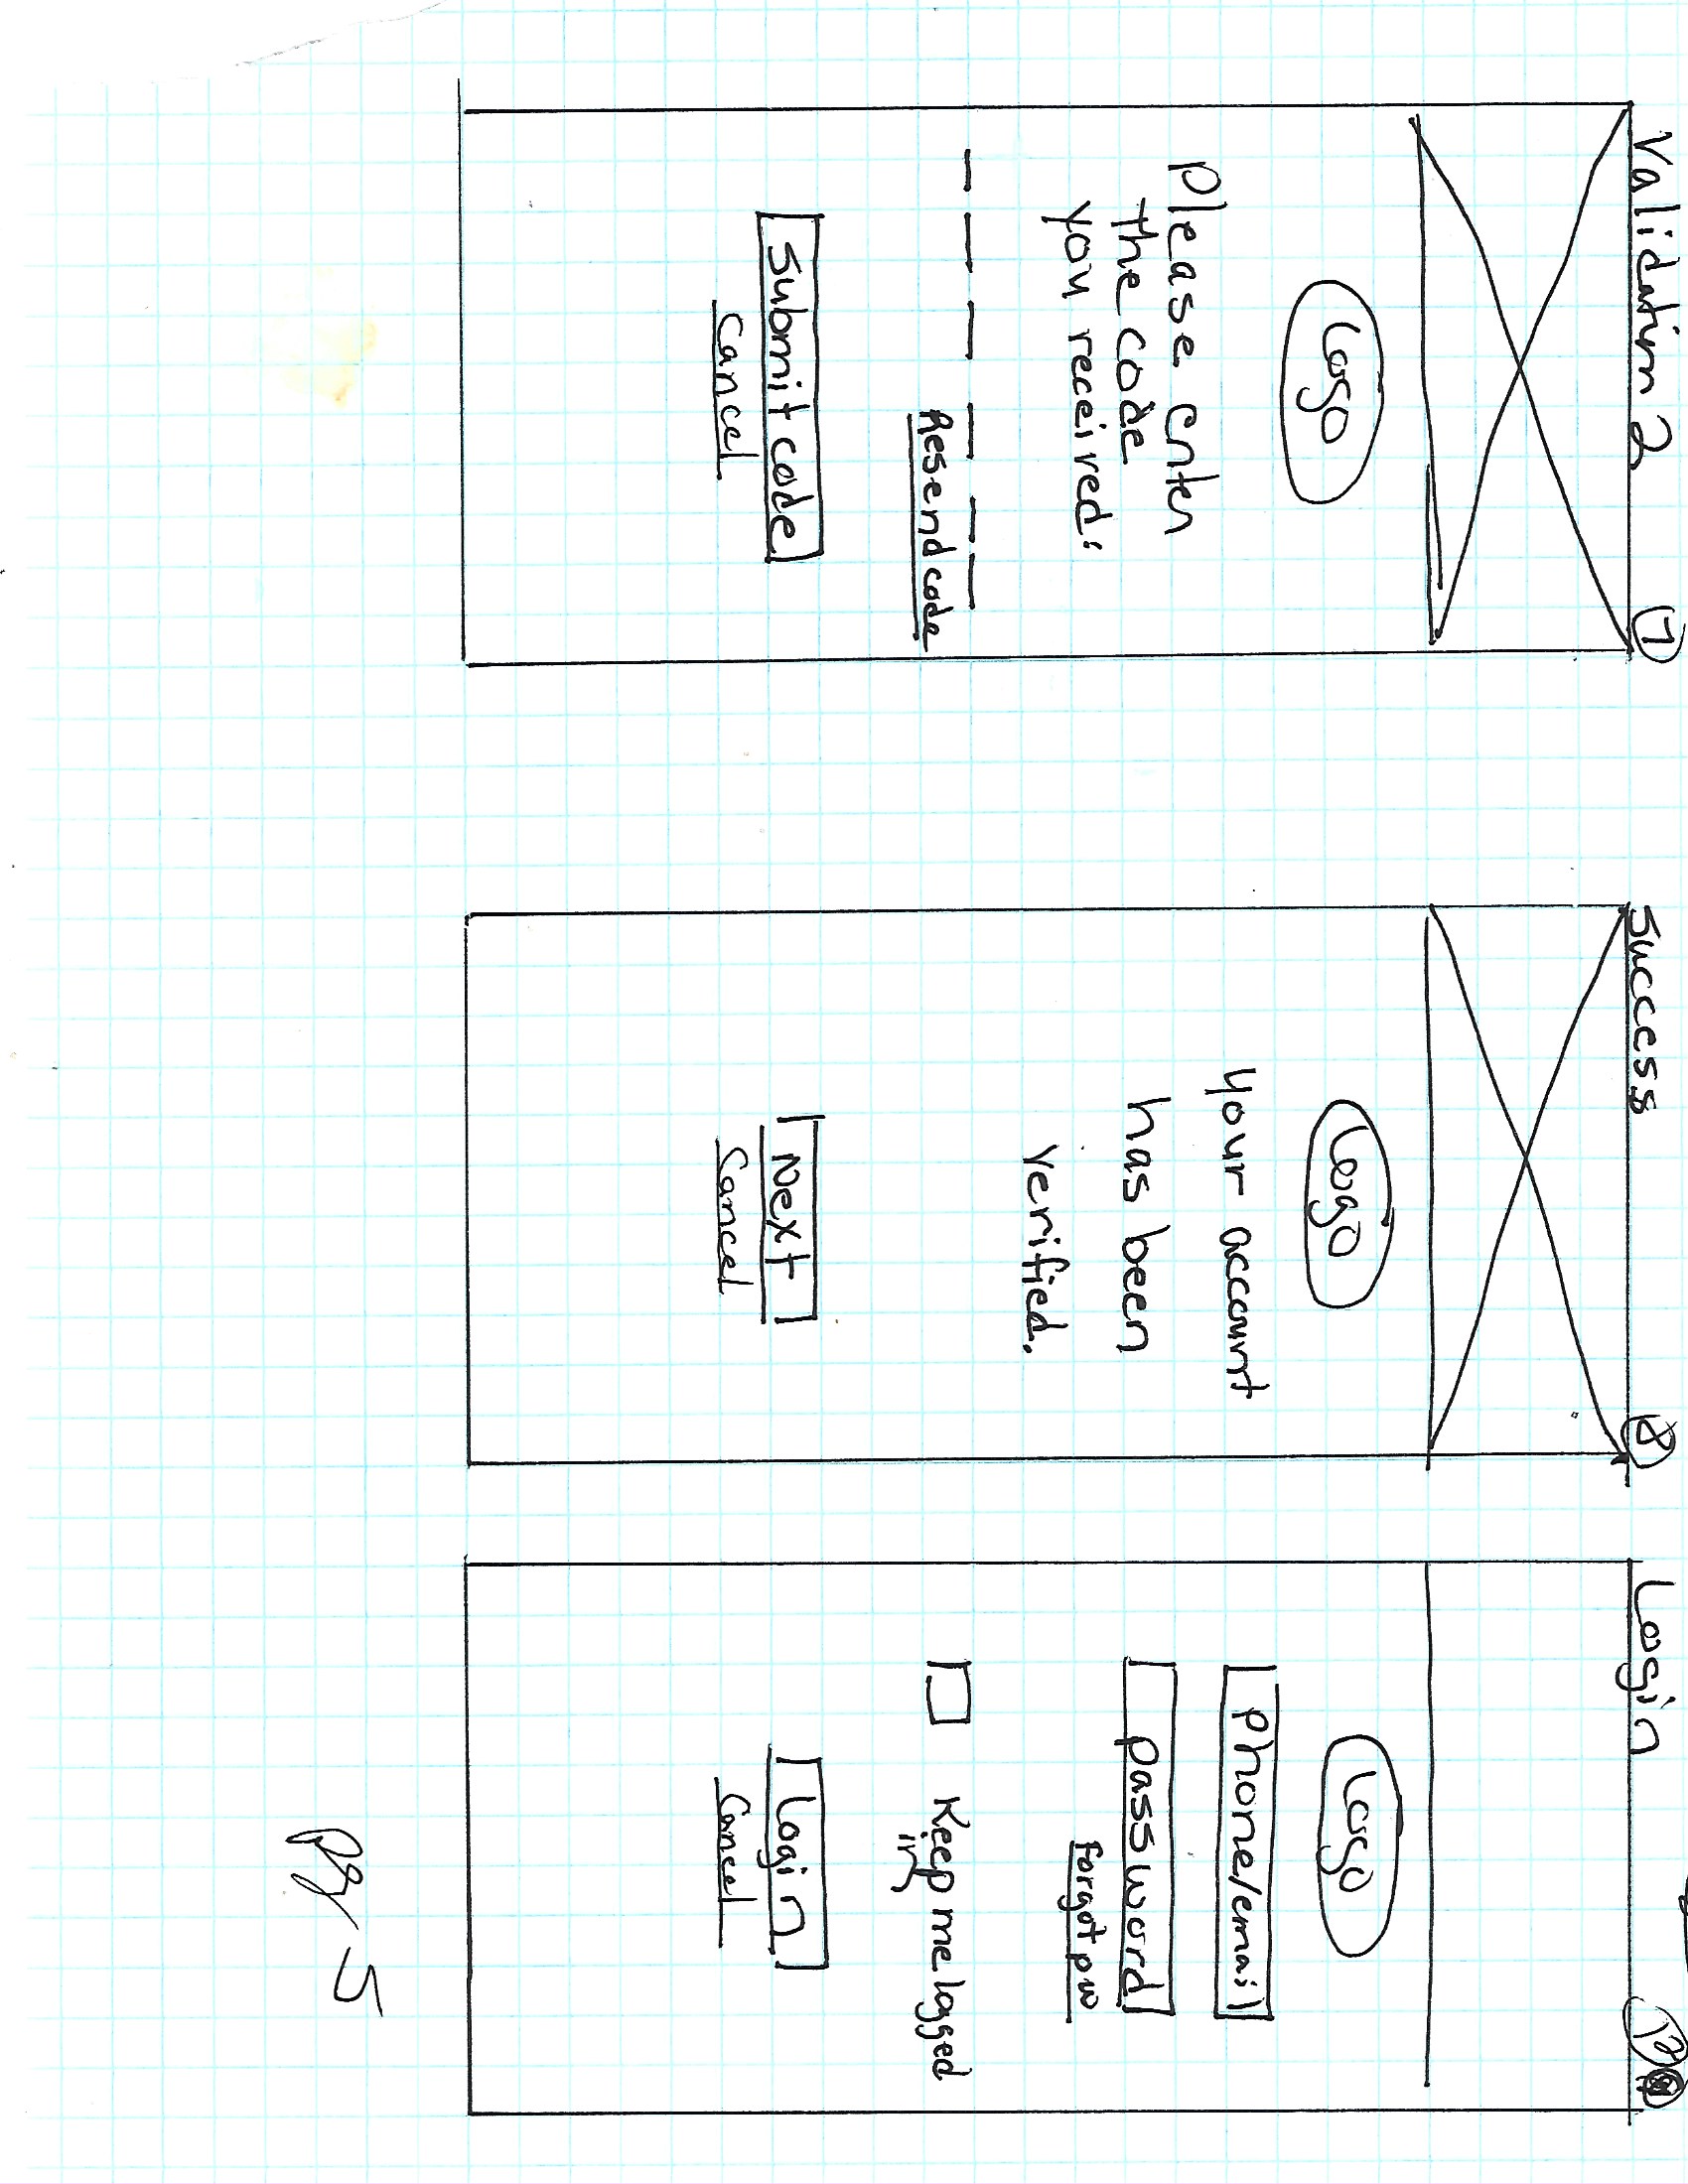 Validation 2
7
Logo
Please enter
the code
you received:
Resend code
Submit code
Cancel
Success
8
Logo
Your account
has been
verified.
Next
Cancel
Login
Logo
Phone/email
password
Forgot pw
Keep me logged
in
Login
Cancel
pg. 5